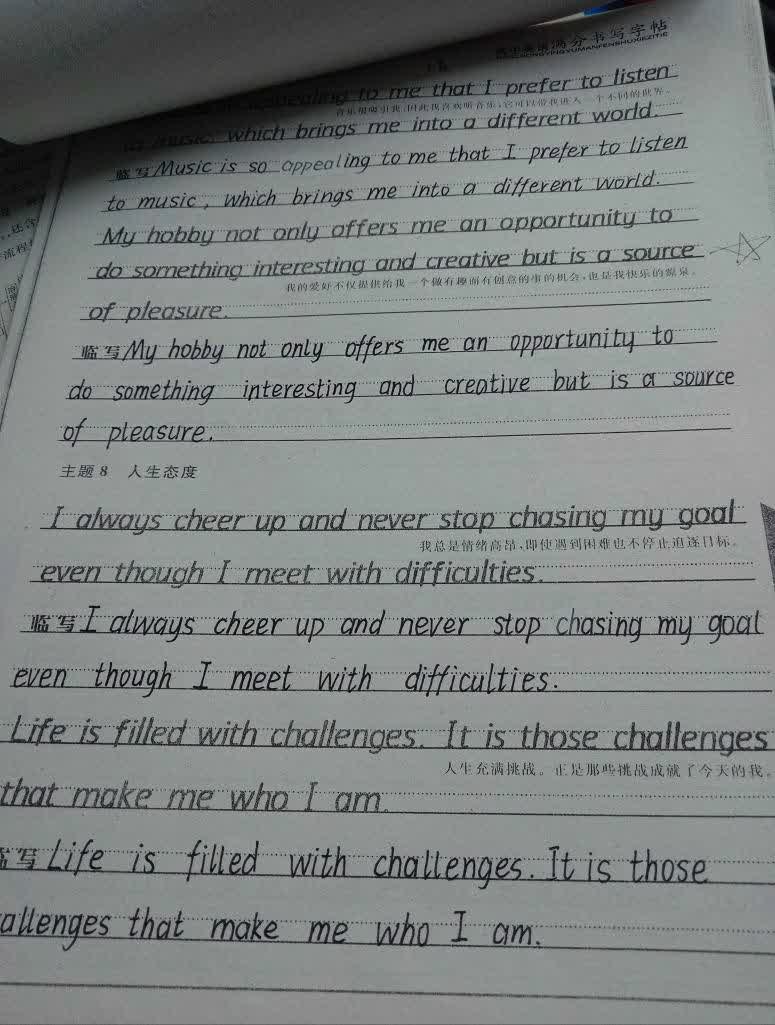 满分书写字帖
appealing to me that I prefer to listen
音乐很吸引我,因此我喜欢听音乐,它可以带我进入一个不同的世界。
to music, which brings me into a different world.
临写 Music is so appealing to me that I prefer to listen
to music, which brings me into a different world.
My hobby not only offers me an opportunity to
do something interesting and creative but is a source
我的爱好不仅提供给我一个做有趣而有创意的事的机会,也是我快乐的源泉。
of pleasure.
临写 My hobby not only offers me an opportunity to
do something interesting and creative but is a source
of pleasure.
主题 8 人生态度
I always cheer up and never stop chasing my goal
我总是情绪高昂,即使遇到困难也不停止追逐目标。
even though I meet with difficulties.
临写 I always cheer up and never stop chasing my goal
even though I meet with difficulties.
Life is filled with challenges. It is those challenges
人生充满挑战。正是那些挑战成就了今天的我。
that make me who I am.
临写 Life is filled with challenges. It is those
allenges that make me who I am.